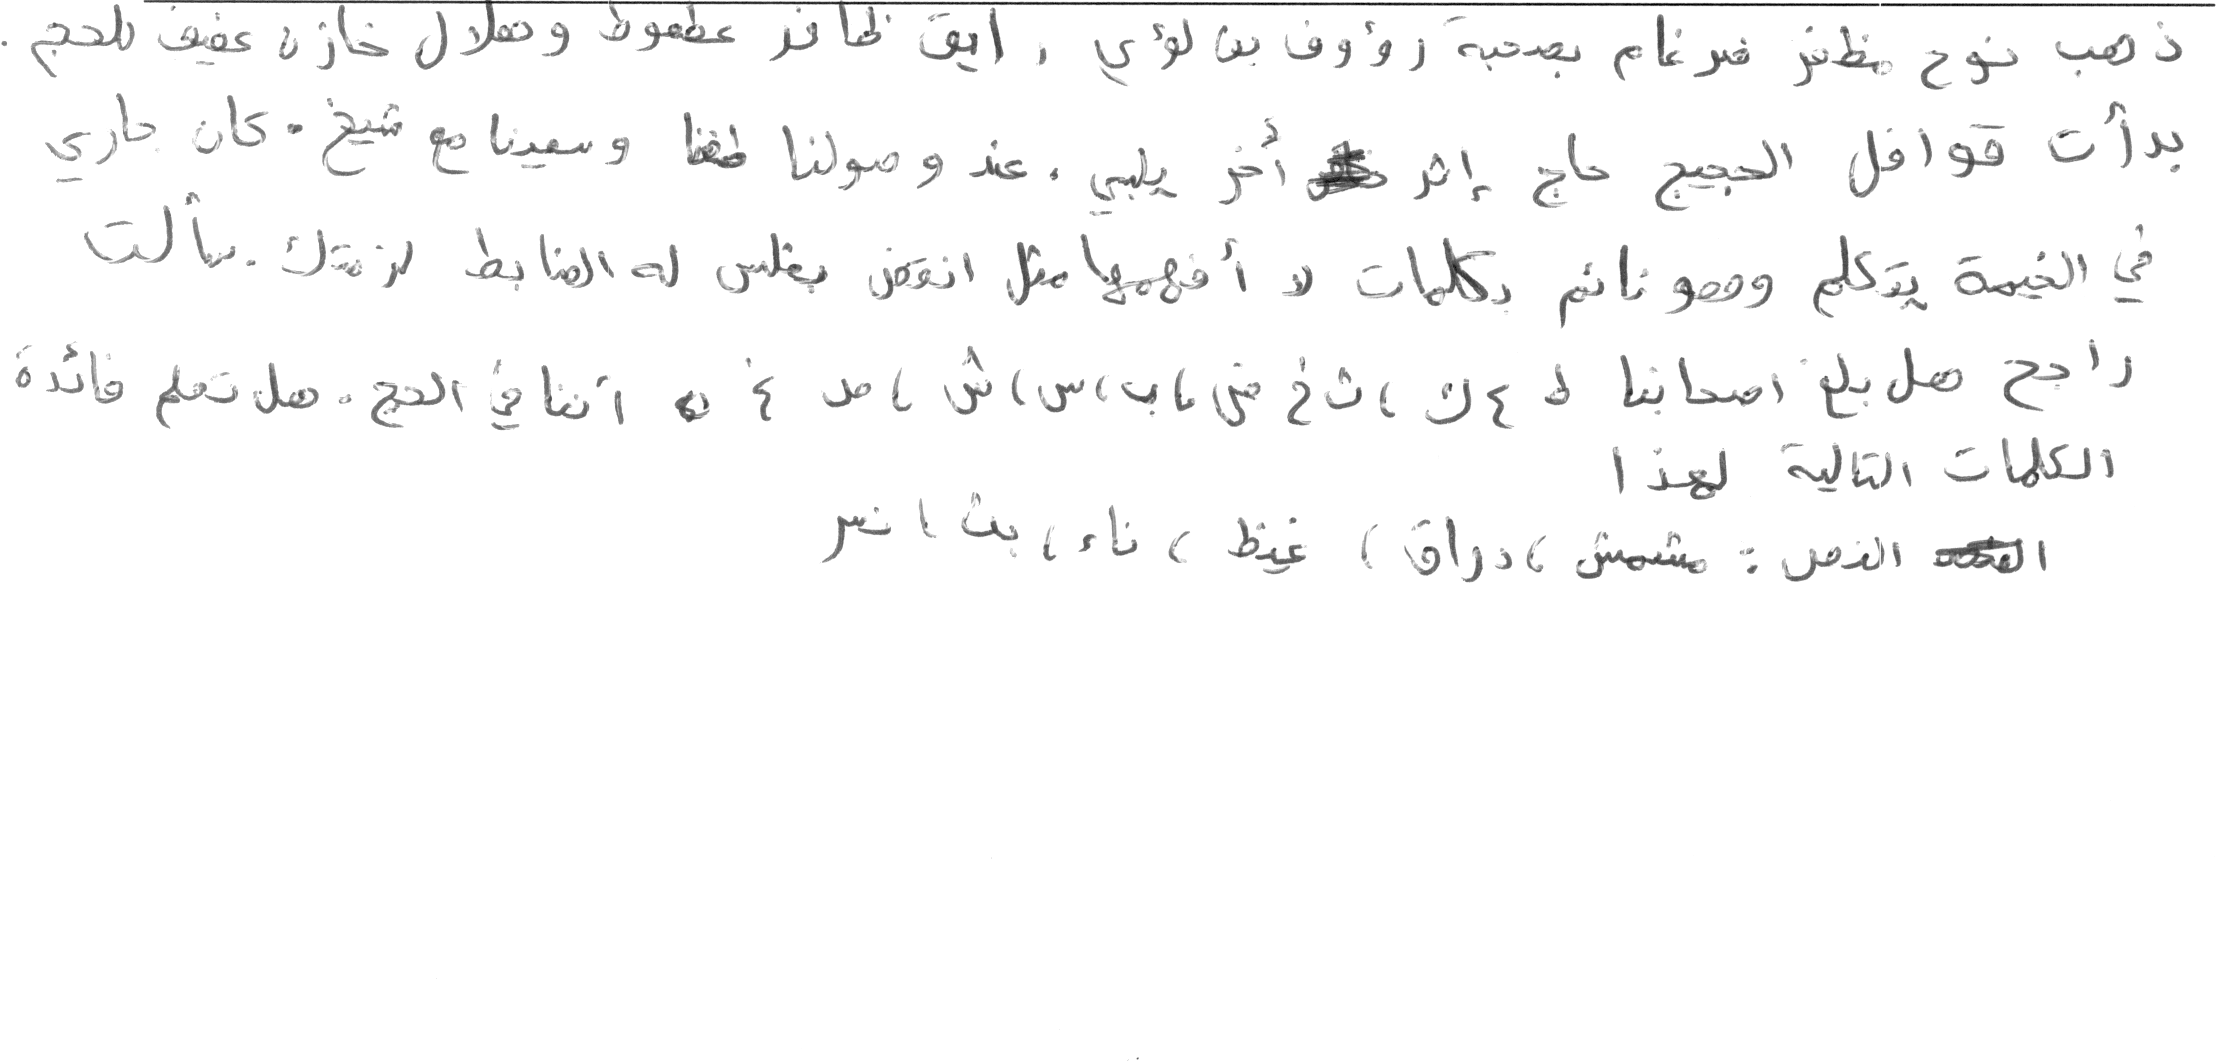 ذهب نوح مظفر ضرغام بصحبة رؤوف بن لؤي ، ايق ظافر عطعوط وهلال خازن عفيف للحج .
بدأت قوافل الحجيج حاج إثر أخر يلبي . عند وصولنا طفنا وسعينا مع شيخ . كان جاري
في الخيمة يتكلم وهو نائم بكلمات لا أفهمها مثل انقض بغلس له الضابط لزمتك . سألت
راجح هل بلغ اصحابنا ط ع ك ، ث خ ض ، ب ، س ، ش ، صد غ ه أننا في الحج . هل تعلم فائدة
الكلمات التالية لهذا
النص : مشمش ، دراق ، غيظ ، ناء ، بث ، نس